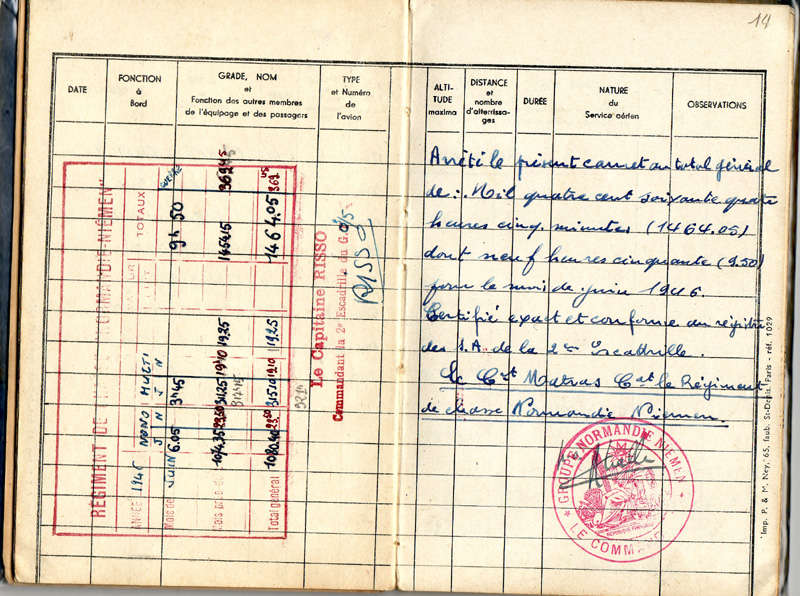 14
DATE
FONCTION
à
Bord
GRADE, NOM
et
Fonction des autres membres
de l'équipage et des passagers
TYPE
et Numéro
de
l'avion
ALTI-
TUDE
maxima
DISTANCE
et
nombre
d'atterrissa-
ges
DURÉE
NATURE
du
Service aérien
OBSERVATIONS
RÉGIMENT DE "NORMANDIE-NIEMEN"
ANNÉE 1946
MONO MULTI
J N J N
TOTAUX
GUERRE
Mois de JUIN 6.05 3h45 9h50
Total général 19.25 1464.05
Le Capitaine RISSO
Commandant la 2e Escadrille du G.C/5
RISSO
Arrêté le présent carnet au total général
de : Mil quatre cent soixante quatre
heures cinq minutes (1464.05)
dont neuf heures cinquante (9.50)
pour le mois de juin 1946.
Certifié exact et conforme au registre
des S.A. de la 2ème Escadrille.
Le Ct Matras Cdt le Régiment
de chasse Normandie Niemen.
* GROUPE NORMANDIE NIEMEN *
RÉPUBLIQUE FRANÇAISE
LE COMMAN
Imp. P. & M. Ney, 65, faub. St-Denis, Paris - réf. 1029